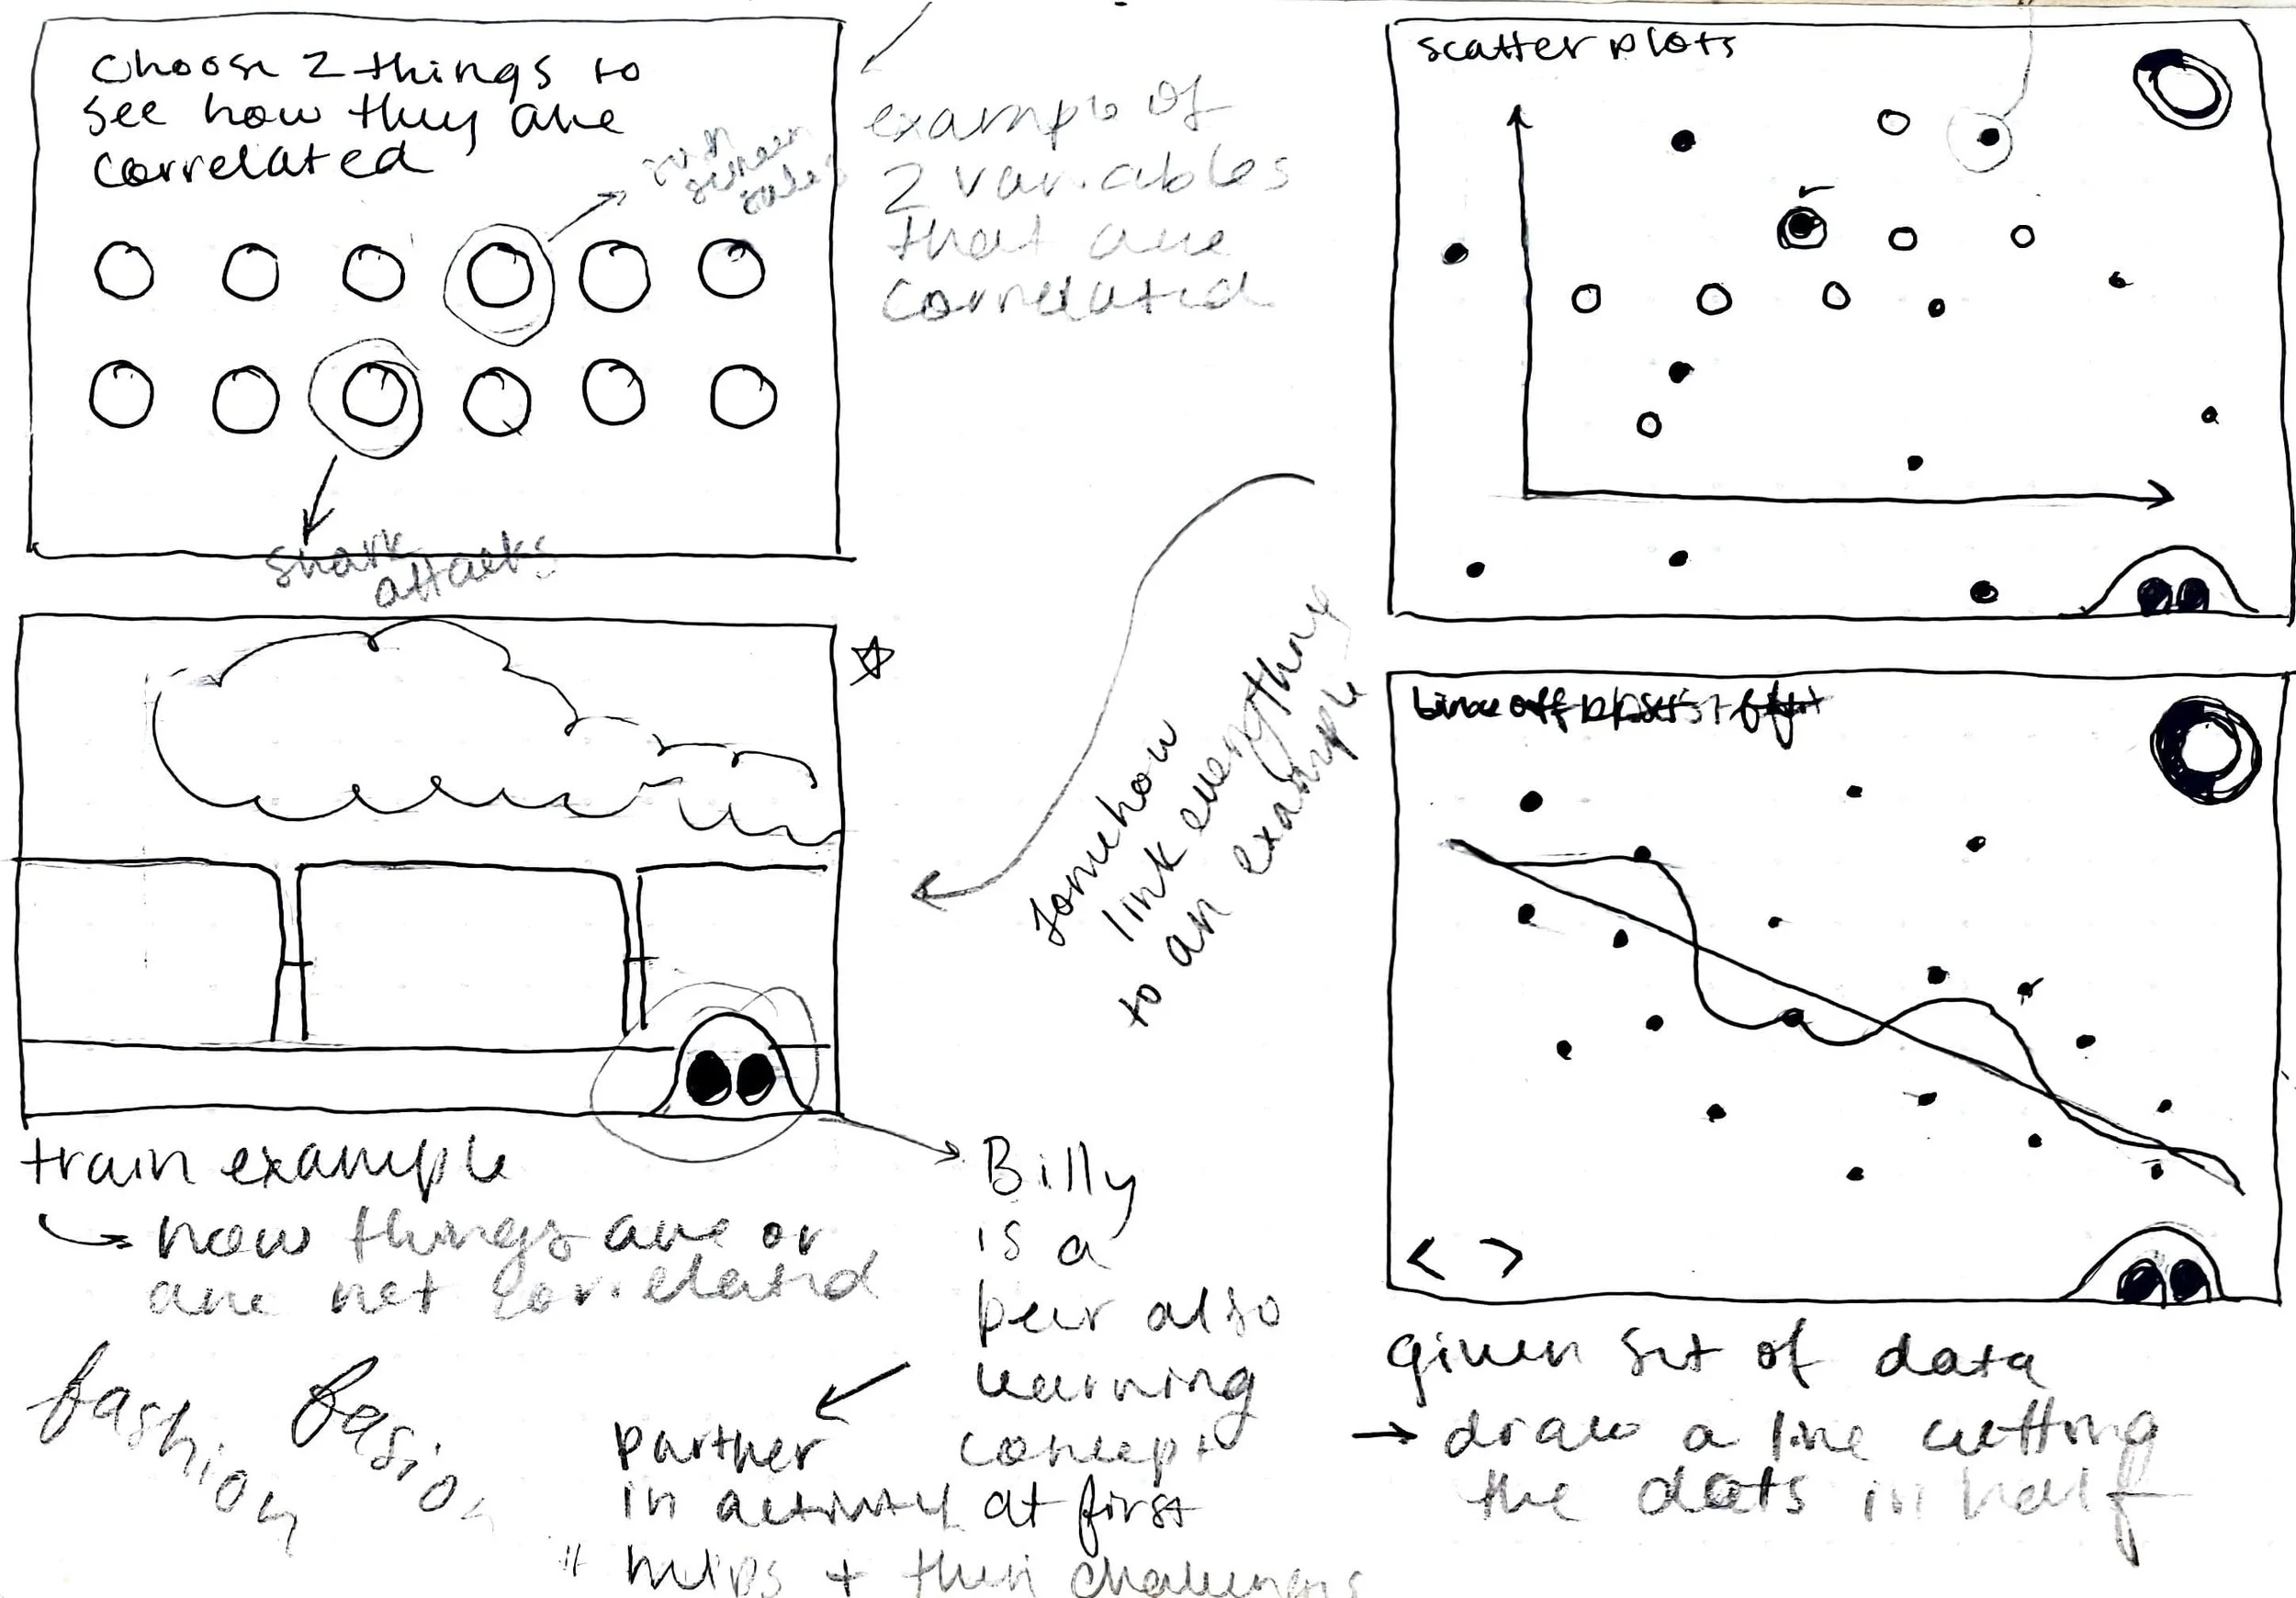 choose 2 things to
see how they are
correlated
example of
2 variables
that are
correlated
shark
attacks
scatter plots
somehow
link everything
to an example
train example
how things are or
are not correlated
Billy
is a
peer also
learning
concept
at first
partner
in activity
helps + then challenges
fashion
fasion
given set of data
→ draw a line cutting
the dots in half